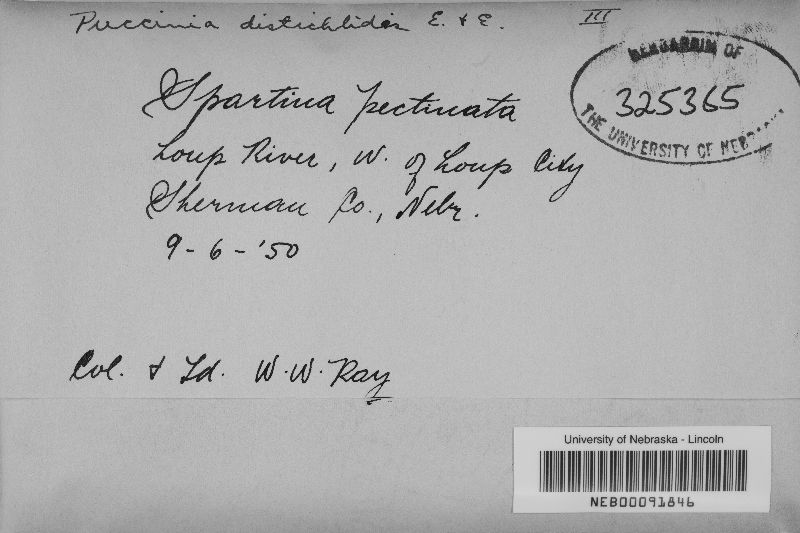 Puccinia distichlidis E. & E. III
HERBARIUM OF
325365
THE UNIVERSITY OF NEBRASKA
Spartina pectinata
Loup River, W. of Loup City
Sherman Co., Nebr.
9-6-'50
Col. & Id. W. W. Ray
University of Nebraska - Lincoln
NEB00091846